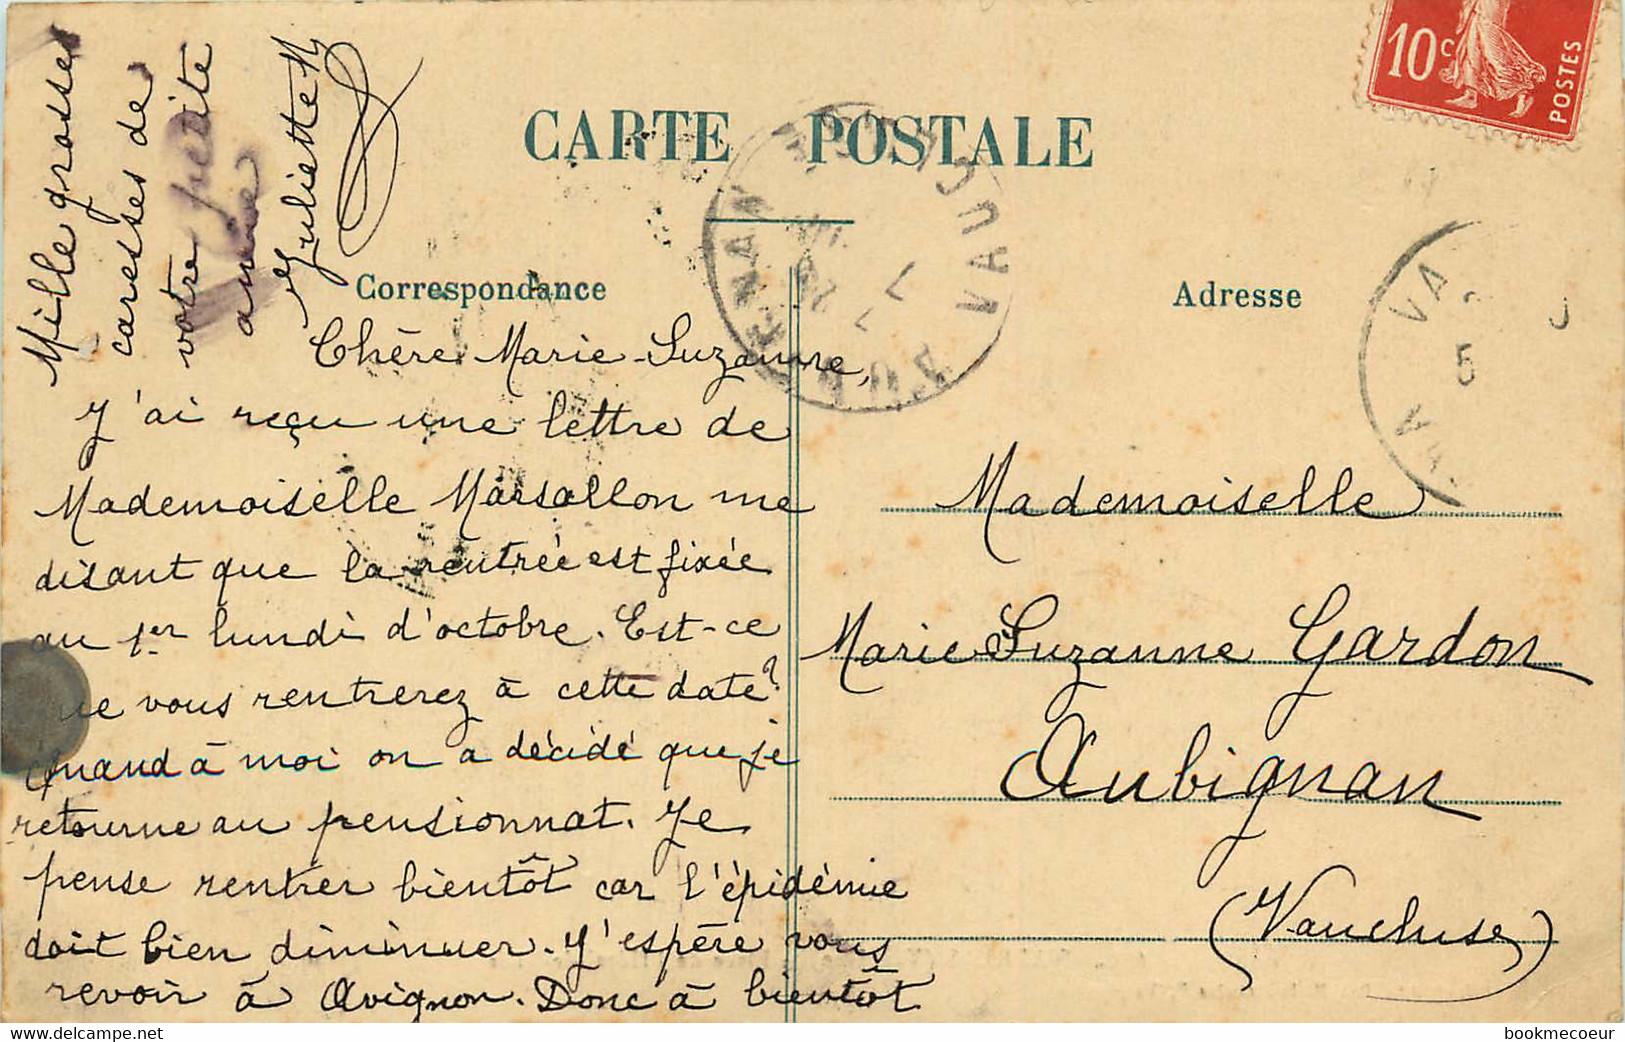 Mille grosses
caresses de
votre petite
amie
Juliette N
10c
POSTES
CARTE POSTALE
Correspondance
Adresse
Chère Marie-Suzanne,
J'ai reçu une lettre de
Mademoiselle Marsallon me
disant que la rentrée est fixée
au 1er lundi d'octobre. Est-ce
que vous rentrerez à cette date?
Quand à moi on a décidé que je
retourne au pensionnat. Je
pense rentrer bientôt car l'épidémie
doit bien diminuer. J'espère vous
revoir à Avignon. Donc à bientôt
Mademoiselle
Marie Suzanne Gardon
Aubignan
(Vaucluse)
bookmecoeur